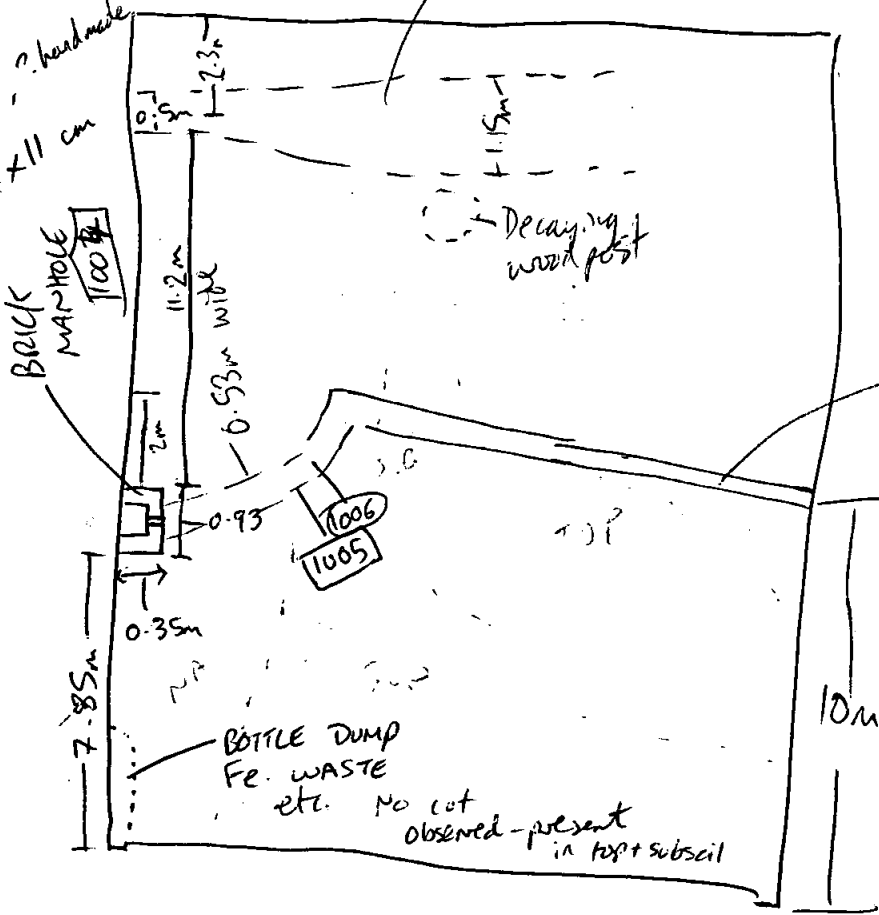 ? handmade
x11 cm
2.3m
0.5m
1.15m
Decaying
wood post
BRICK
MANHOLE
11.2m
0.53m wide
2m
0.93
1006
1005
0.35m
7.85m
10m
BOTTLE DUMP
Fe. WASTE
etc. No cut
observed - present
in top + subsoil